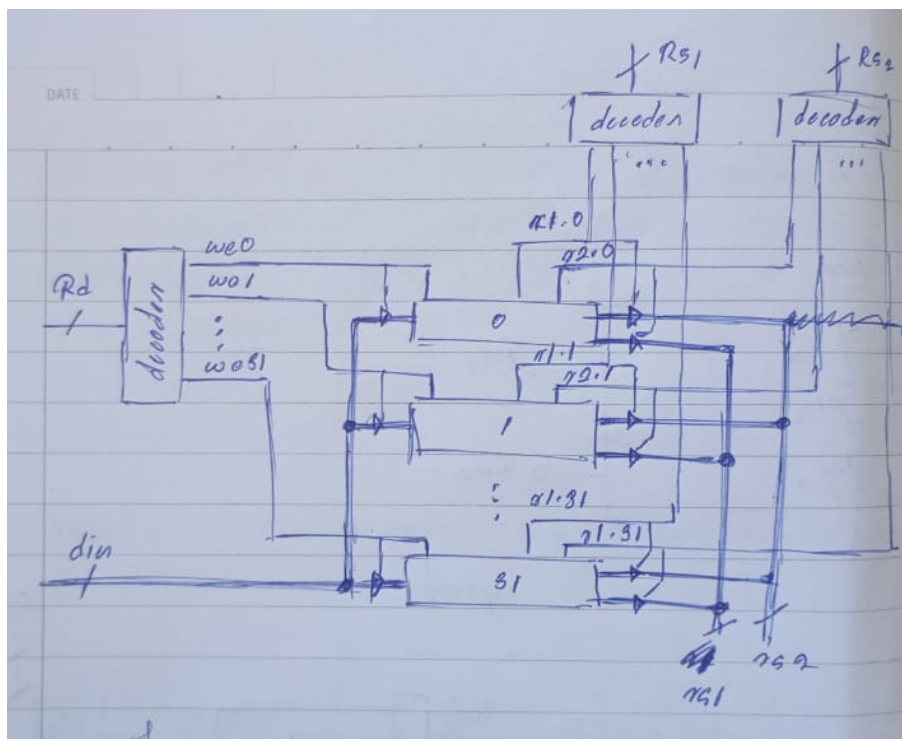 DATE
Rs1
Rs2
decoder
decoder
...
...
r1.0
we0
r2.0
Rd
we1
decoder
0
we31
r1.1
r2.1
1
r1.31
r1.31
din
31
rs2
rs1